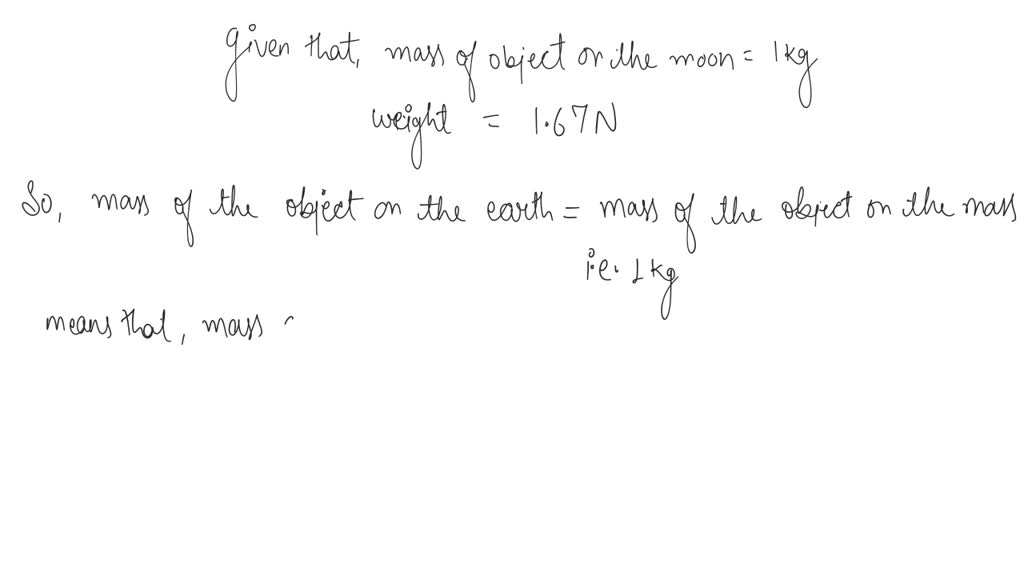 given that, mass of object on the moon = 1kg
weight = 1.67N
So, mass of the object on the earth = mass of the object on the mass
i.e. 1kg
means that, mass